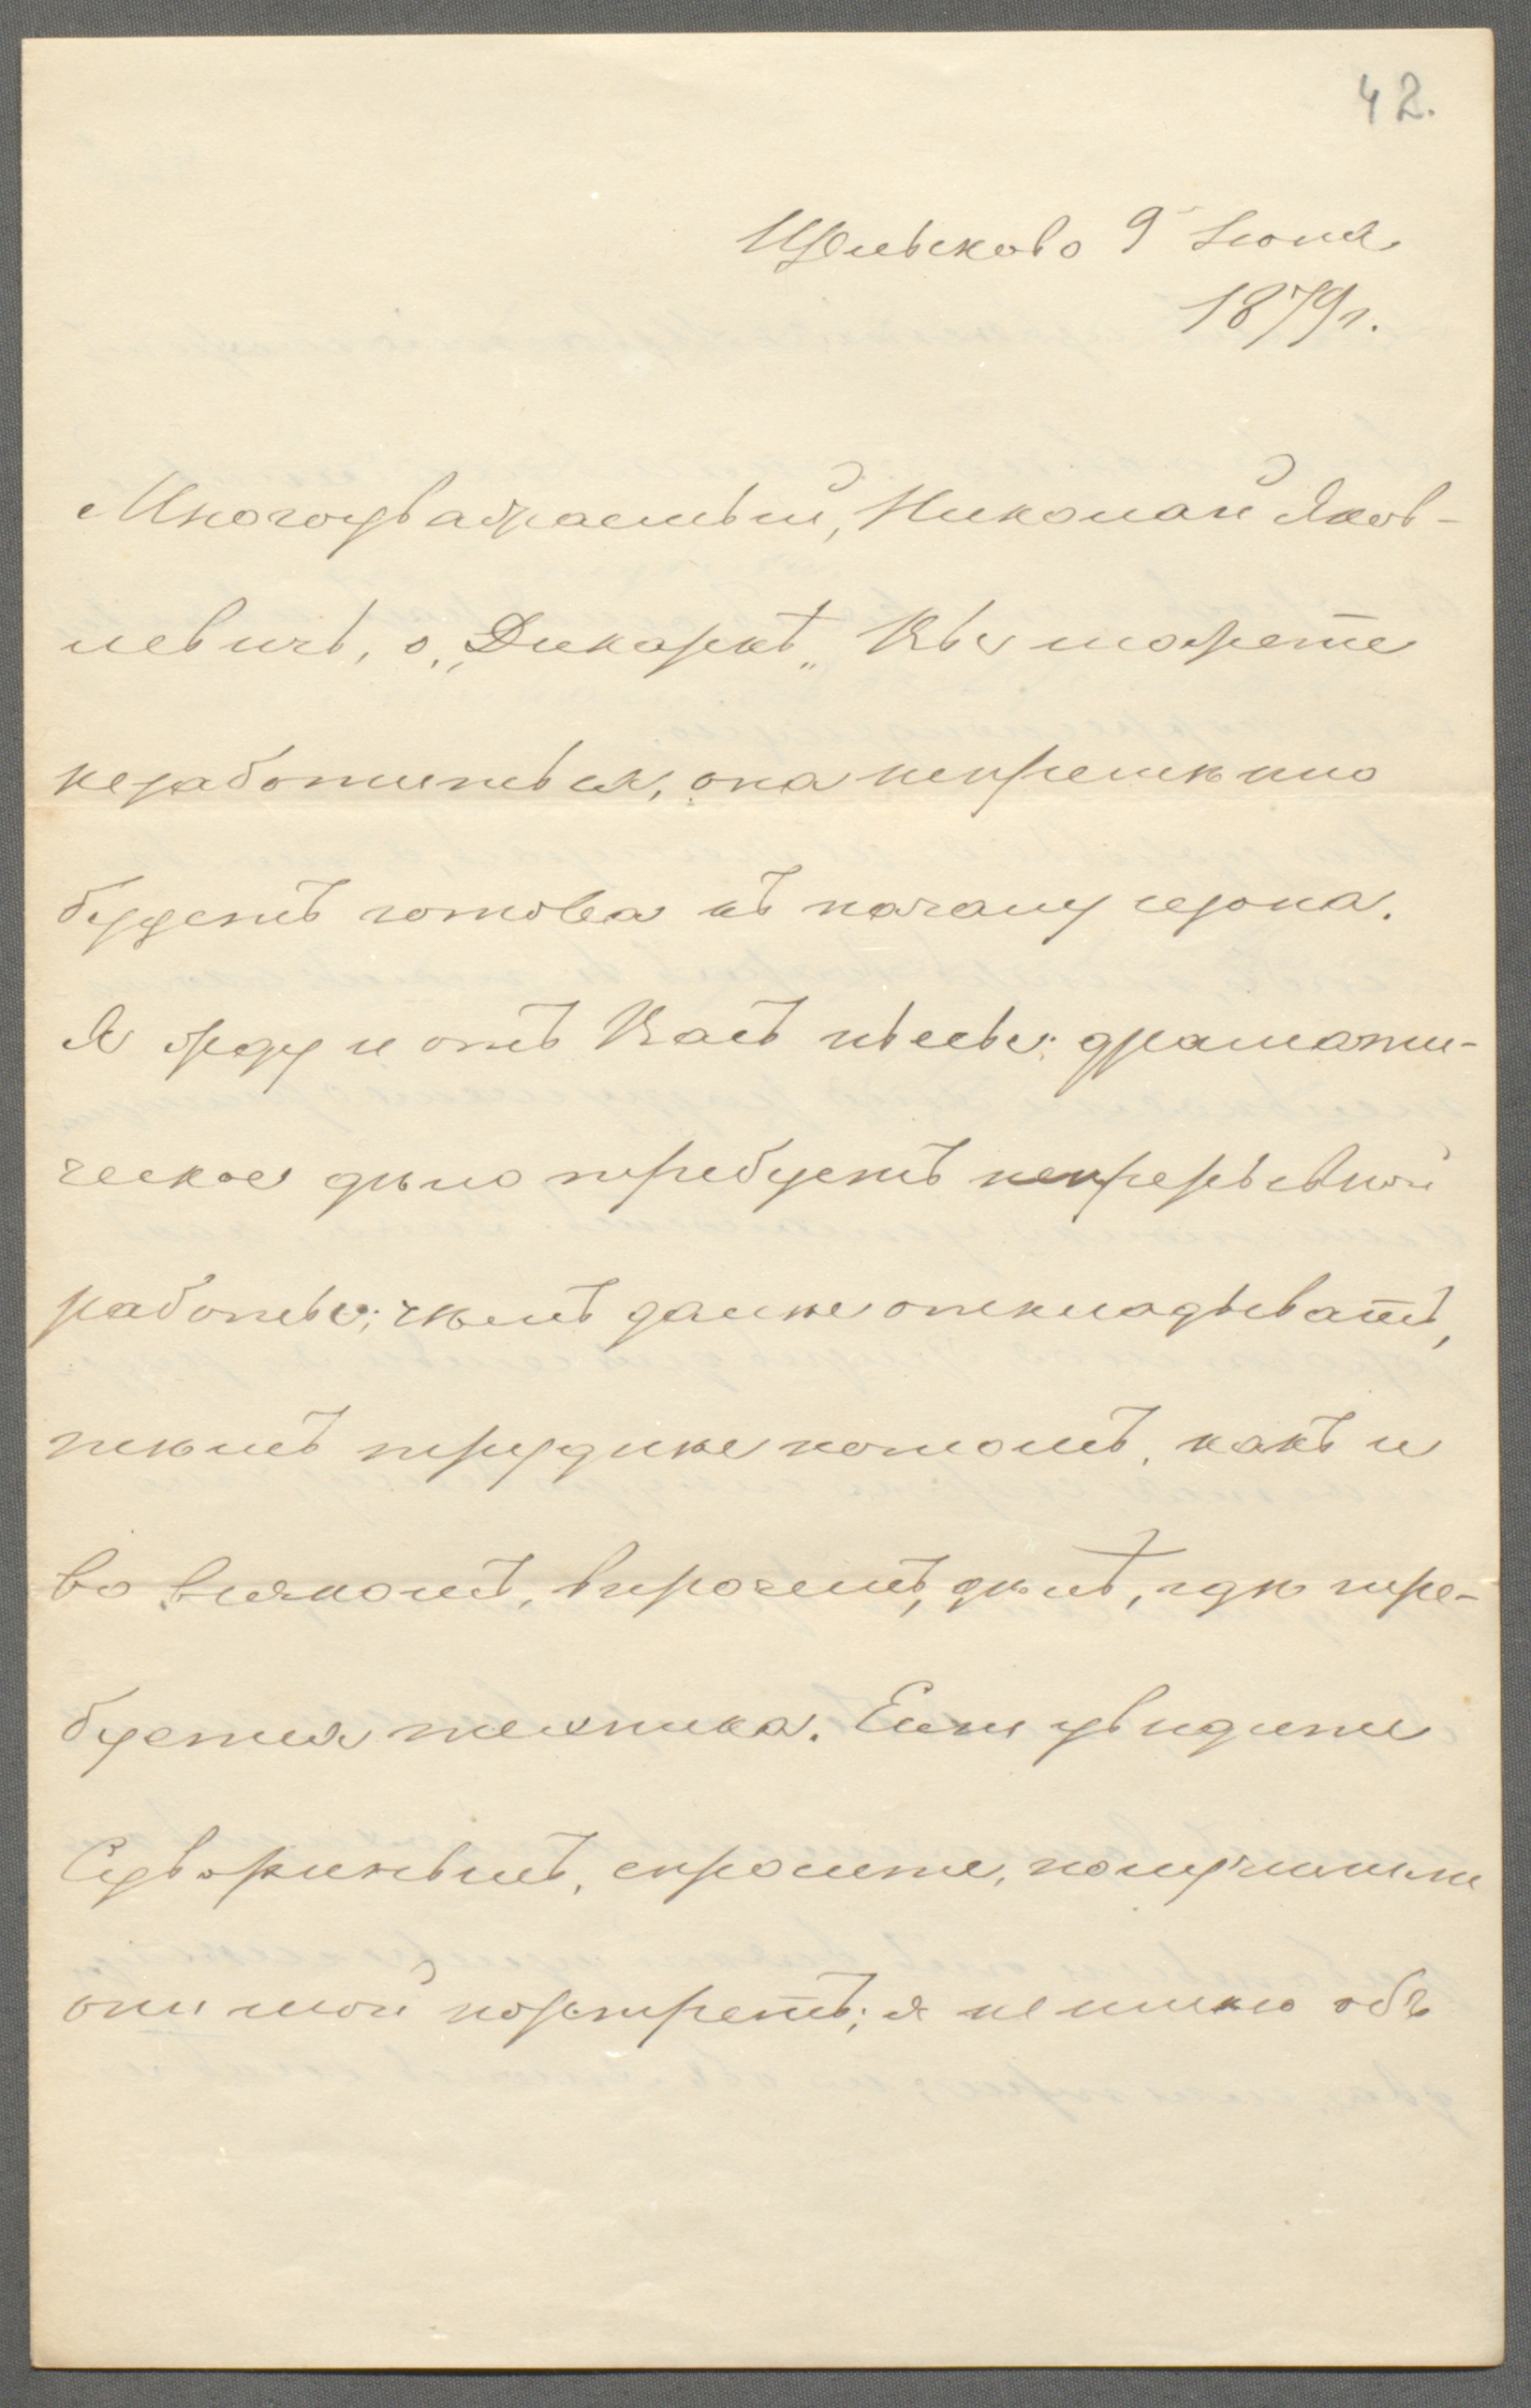 42.
Щелыково 9 Іюня
1879 г.
Многоуважаемый, Николай Яков-
левичъ, о „Дикаркѣ„ Вы можете
незаботиться, она непремѣнно
будетъ готова къ началу сезона.
Я жду и отъ Васъ пьесы: драмати-
ческое дѣло требуетъ непрерывной
работы; чѣмъ далѣе откладывать,
тѣмъ труднѣе потомъ, какъ и
во всякомъ, впрочемъ, дѣлѣ, гдѣ тре-
буется техника. Если увидите
Суворинымъ, спросите, получили ли
они мой портретъ; я не имѣю объ